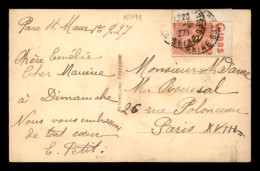 Parc St. Maur 16 7.27
Chère Emélie
Cher Maurice
à Dimanche
Nous vous embrassons
de tout cœur
E. Petit.
Monsieur Madame
Mr. Roussal
26 rue Polonceau
Paris XVIII